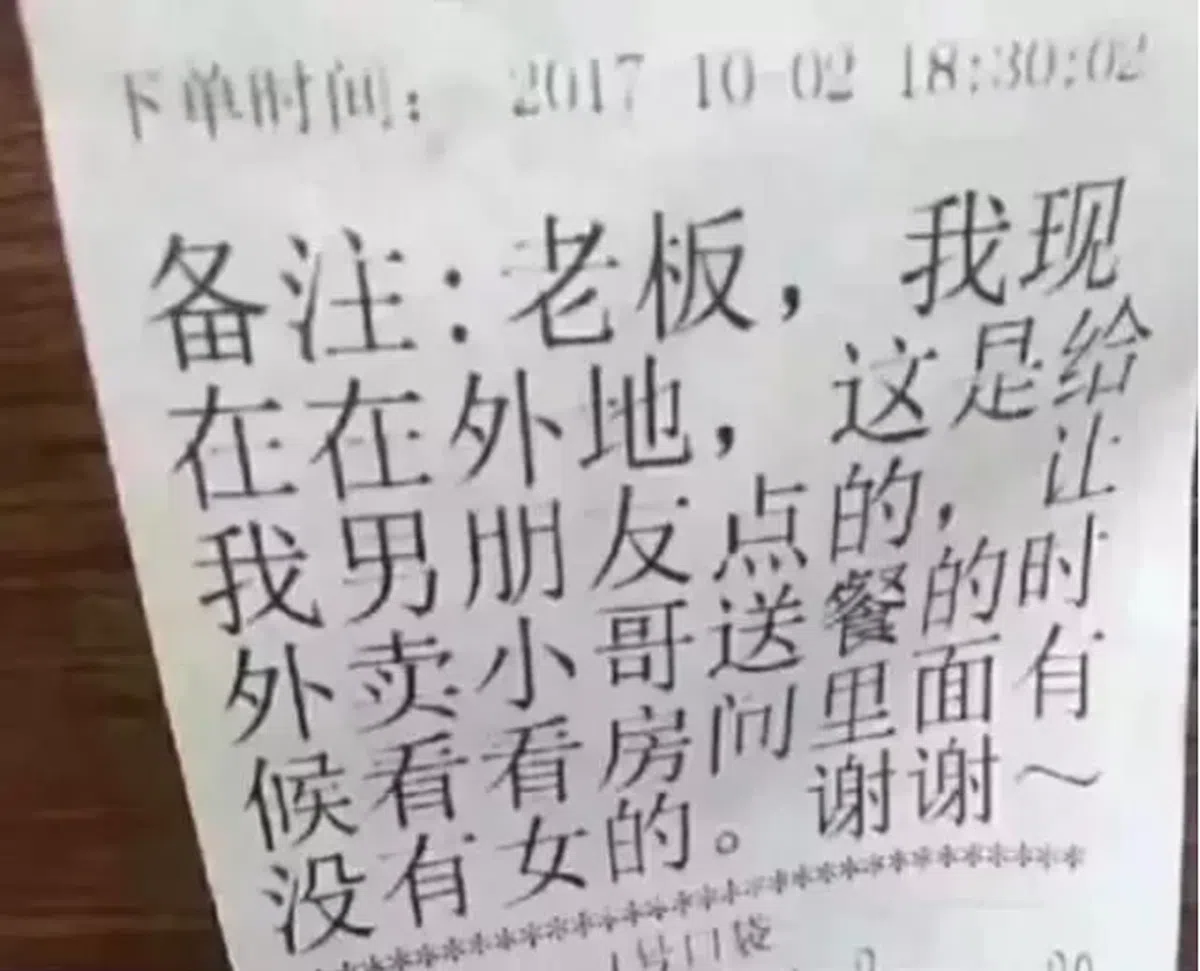 下单时间： 2017 10-02 18:30:02
备注：老板，我现
在在外地，这是给
我男朋友点的，让
外卖小哥送餐的时
候看看房间里面有
没有女的。谢谢～
***********************************
1号口袋